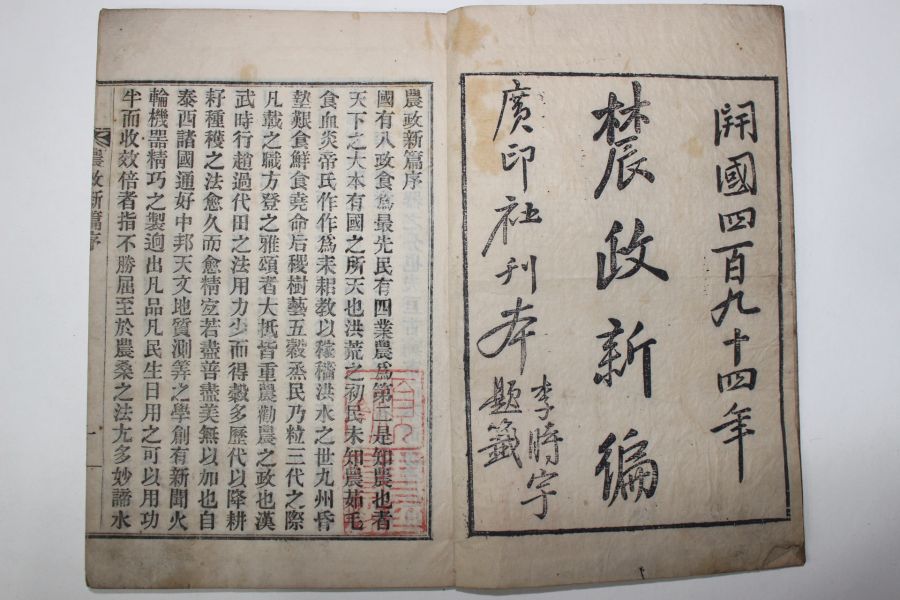 開國四百九十四年
農政新編
廣印社刊本
李時字
題籤
農政新篇序
國有八政食爲最先民有四業農爲第二是知農也者
天下之大本有國之所天也洪荒之初民未知農茹毛
食血炎帝氏作作爲耒耜教以稼穡洪水之世九州昏
墊艱食鮮食堯命后稷樹藝五穀烝民乃粒三代之際
凡戴之職方登之雅頌者大抵皆重農勸農之政也漢
武時行趙過代田之法用力少而得穀多歷代以降耕
耔種穫之法愈久而愈精宐若盡善盡美無以加也自
泰西諸國通好中邦天文地質測筭之學創有新聞火
輪機器精巧之製逈出凡品凡民生日用之可以用功
半而收效倍者指不勝屈至於農桑之法尢多妙諦水
農政新篇序
一